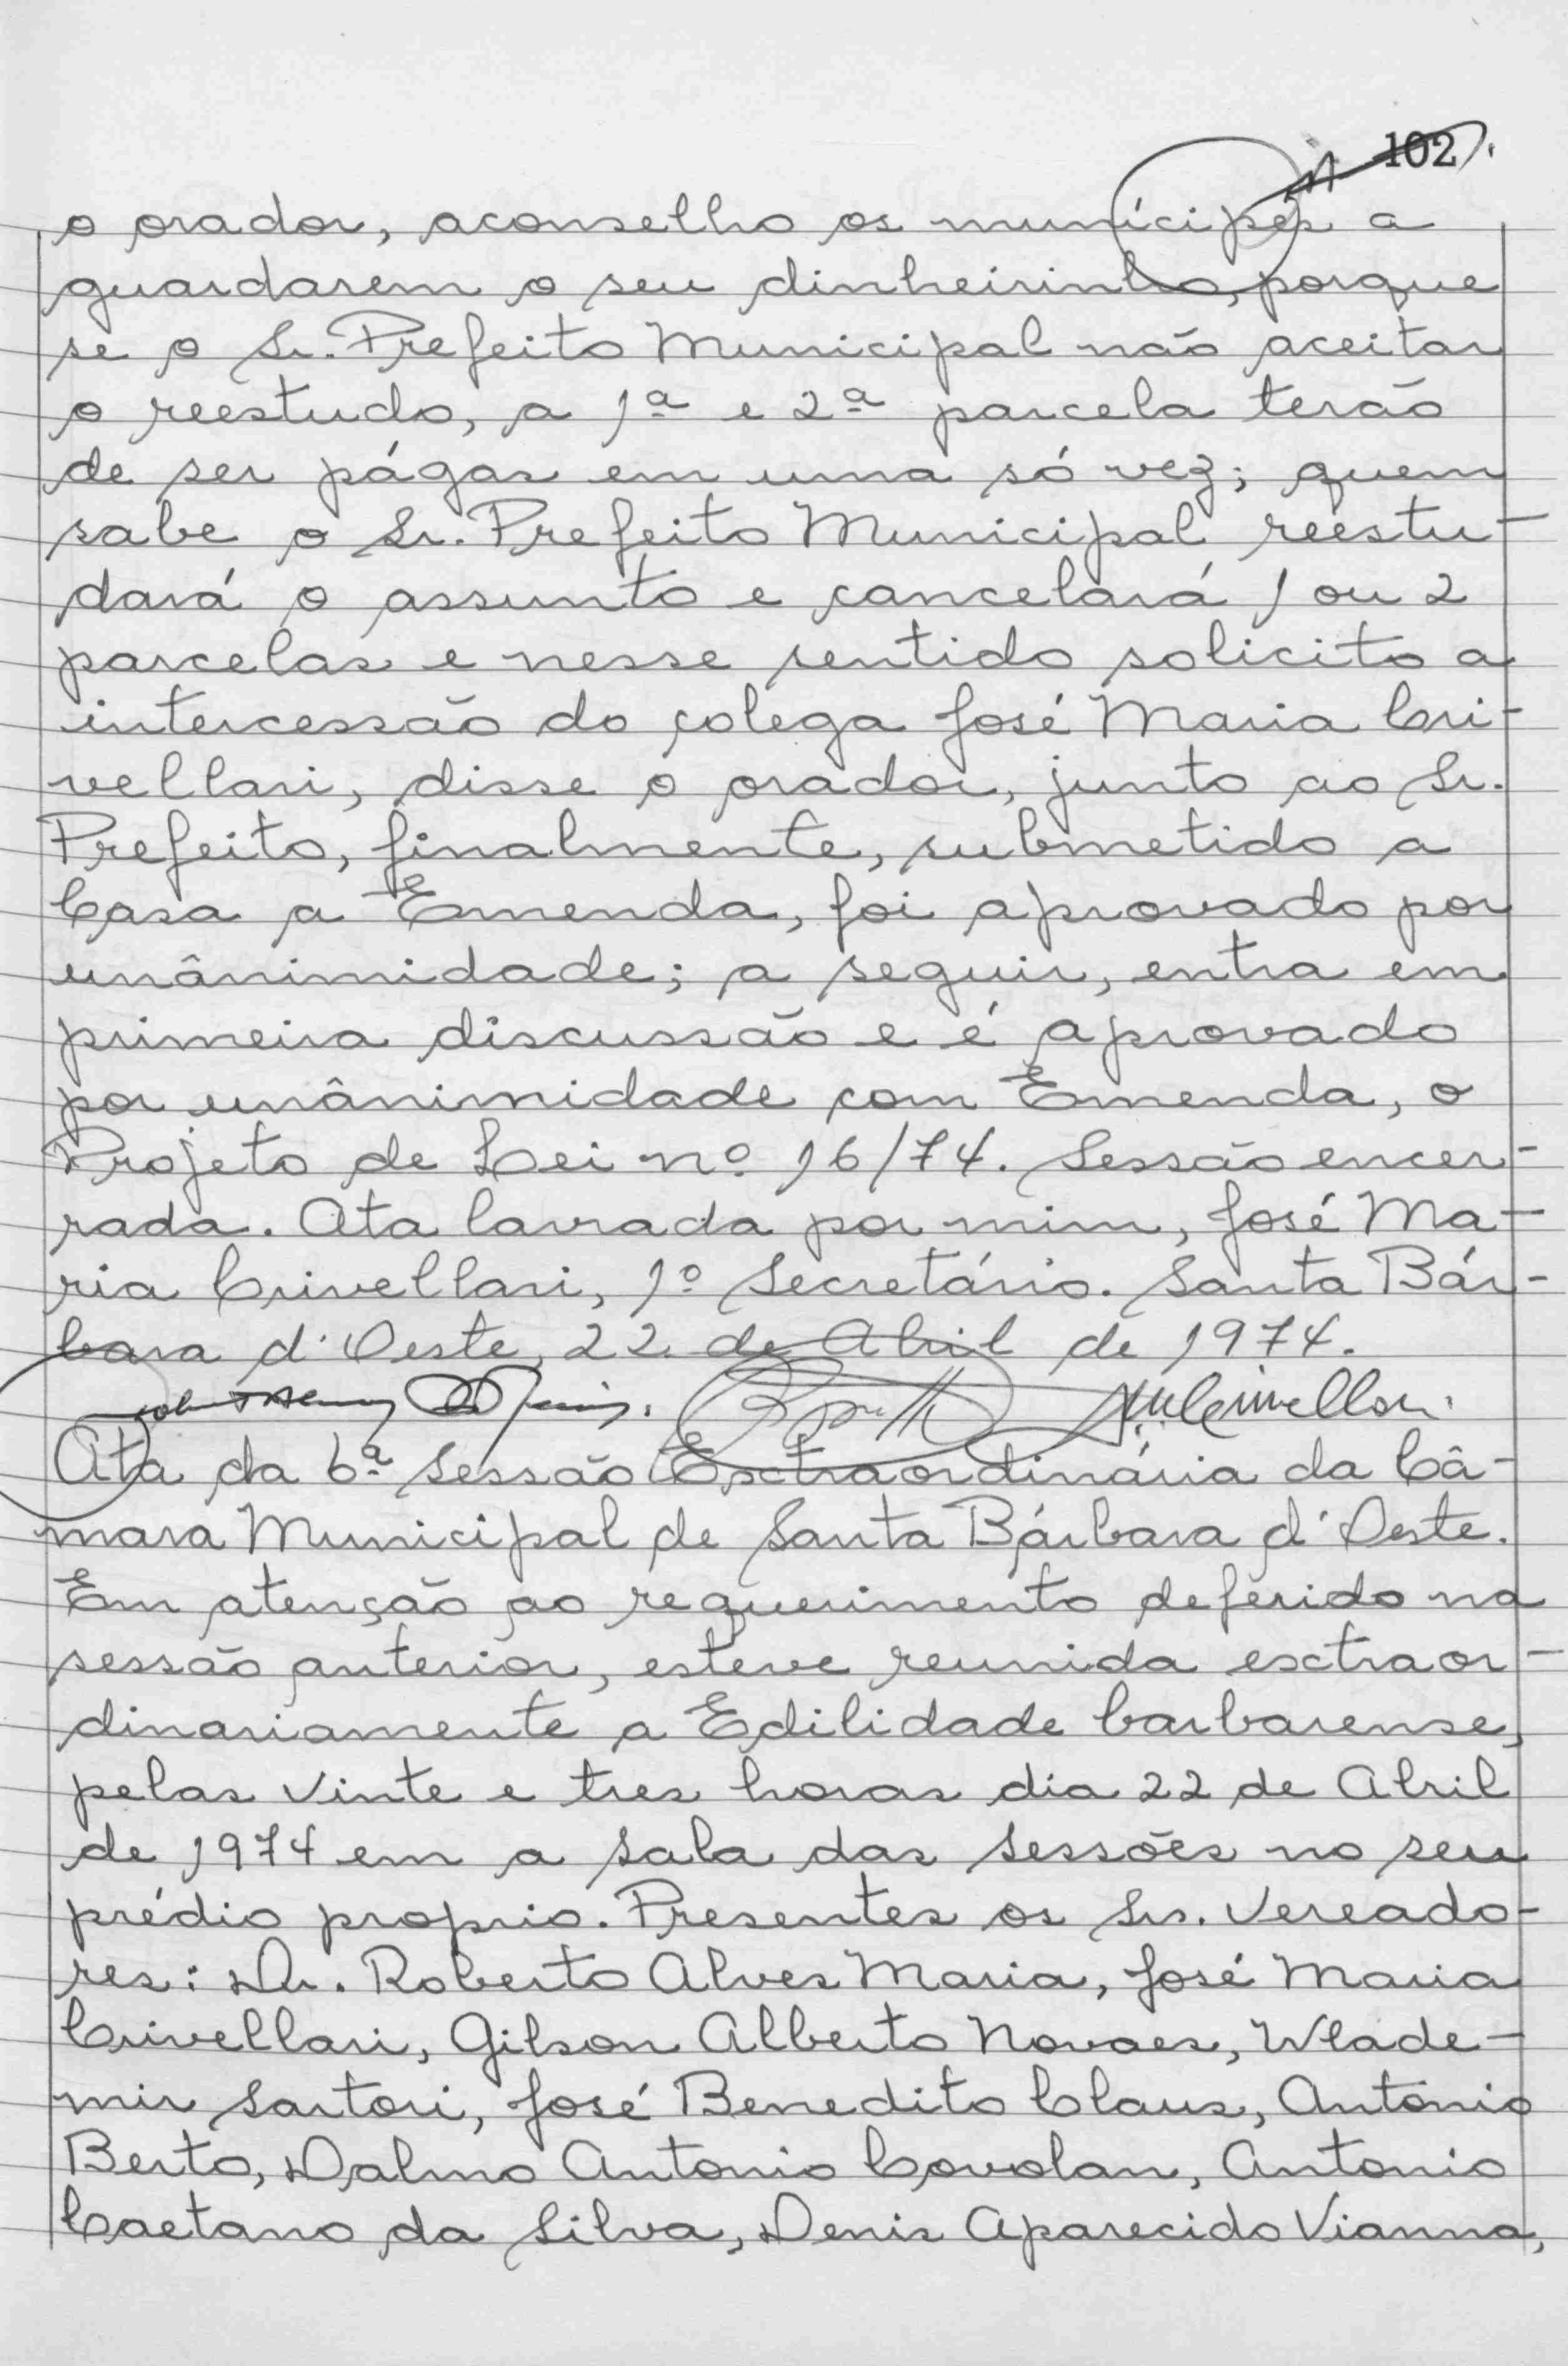 102
o orador, aconselho os munícipes a
guardarem o seu dinheirinho, porque
se o Sr. Prefeito Municipal não aceitar
o reestudo, a 1ª e 2ª parcela terão
de ser págas em uma só vez; quem
sabe o Sr. Prefeito Municipal reestu-
dará o assunto e cancelará 1 ou 2
parcelas e nesse sentido solicito a
intercessão do colega José Maria Cri-
vellari, disse o orador, junto ao Sr.
Prefeito, finalmente, submetido a
Casa a Emenda, foi aprovado por
unânimidade; a seguir, entra em
primeira discussão e é aprovado
por unânimidade com Emenda, o
Projeto de Lei nº 16/74. Sessão encer-
rada. Ata lavrada por mim, José Ma-
ria Crivellari, 1º Secretário. Santa Bár-
bara d'Oeste, 22 de Abril de 1974.
Ata da 6ª Sessão Extraordinária da Câ-
mara Municipal de Santa Bárbara d'Oeste.
Em atenção ao requerimento deferido na
sessão anterior, esteve reunida extraor-
dinariamente a Edilidade barbarense,
pelas vinte e tres horas dia 22 de Abril
de 1974 em a sala das sessões no seu
prédio proprio. Presentes os Srs. Vereado-
res: Dr. Roberto Alves Maria, José Maria
Crivellari, Gilson Alberto Novaes, Wlade-
mir Sartori, José Benedito Claus, Antonio
Berto, Dalmo Antonio Covolan, Antonio
Caetano da Silva, Denis Aparecido Vianna,